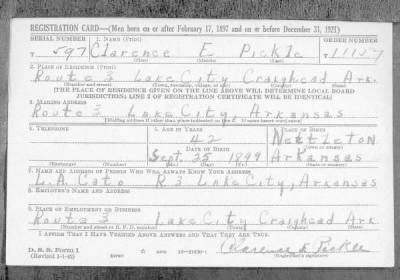 REGISTRATION CARD—(Men born on or after February 17, 1897 and on or before December 31, 1921)
SERIAL NUMBER 1. NAME (Print) ORDER NUMBER
T 597 Clarence E. Pickle T 11157
(First) (Middle) (Last)
2. PLACE OF RESIDENCE (Print)
Route 3 Lake City Craighead Ark.
(Number and street) (Town, township, village, or city) (County) (State)
[THE PLACE OF RESIDENCE GIVEN ON THE LINE ABOVE WILL DETERMINE LOCAL BOARD
JURISDICTION; LINE 2 OF REGISTRATION CERTIFICATE WILL BE IDENTICAL]
3. MAILING ADDRESS
Route 3 Lake City, Arkansas
[Mailing address if other than place indicated on line 2. If same insert word same]
4. TELEPHONE 5. AGE IN YEARS 6. PLACE OF BIRTH
42 Nettleton
DATE OF BIRTH (Town or county)
Sept. 25 1899 Arkansas
(Exchange) (Number) (Mo.) (Day) (Yr.) (State or country)
7. NAME AND ADDRESS OF PERSON WHO WILL ALWAYS KNOW YOUR ADDRESS
L. A. Cato R 3 Lake City, Arkansas
8. EMPLOYER'S NAME AND ADDRESS
9. PLACE OF EMPLOYMENT OR BUSINESS
Route 3 Lake City Craighead Ark
(Number and street or R. F. D. number) (Town) (County) (State)
I AFFIRM THAT I HAVE VERIFIED ABOVE ANSWERS AND THAT THEY ARE TRUE.
D. S. S. Form 1
(Revised 1-1-42) (over) Clarence E Pickle
(Registrant's signature)